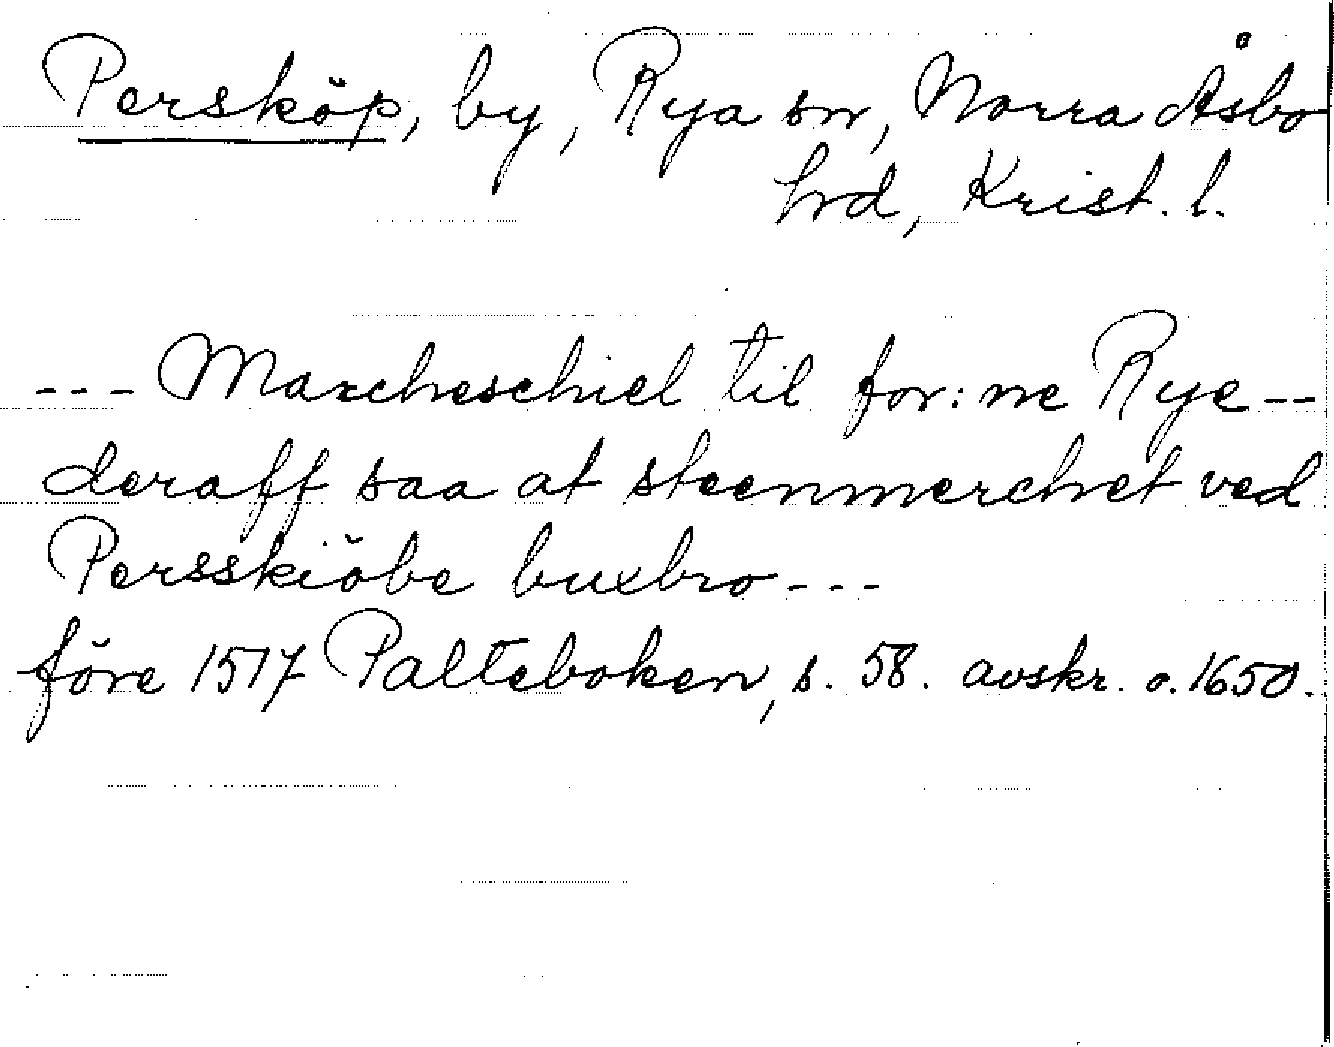 Persköp, by, Rya sn, Norra Åsbo
hrd, Krist. l.
--- Marcheschiel til for: ne Rye --
deraff saa at steenmerchet ved
Persskiöbe buxbro ---
före 1517 Palteboken, s. 58. avskr. o. 1650.